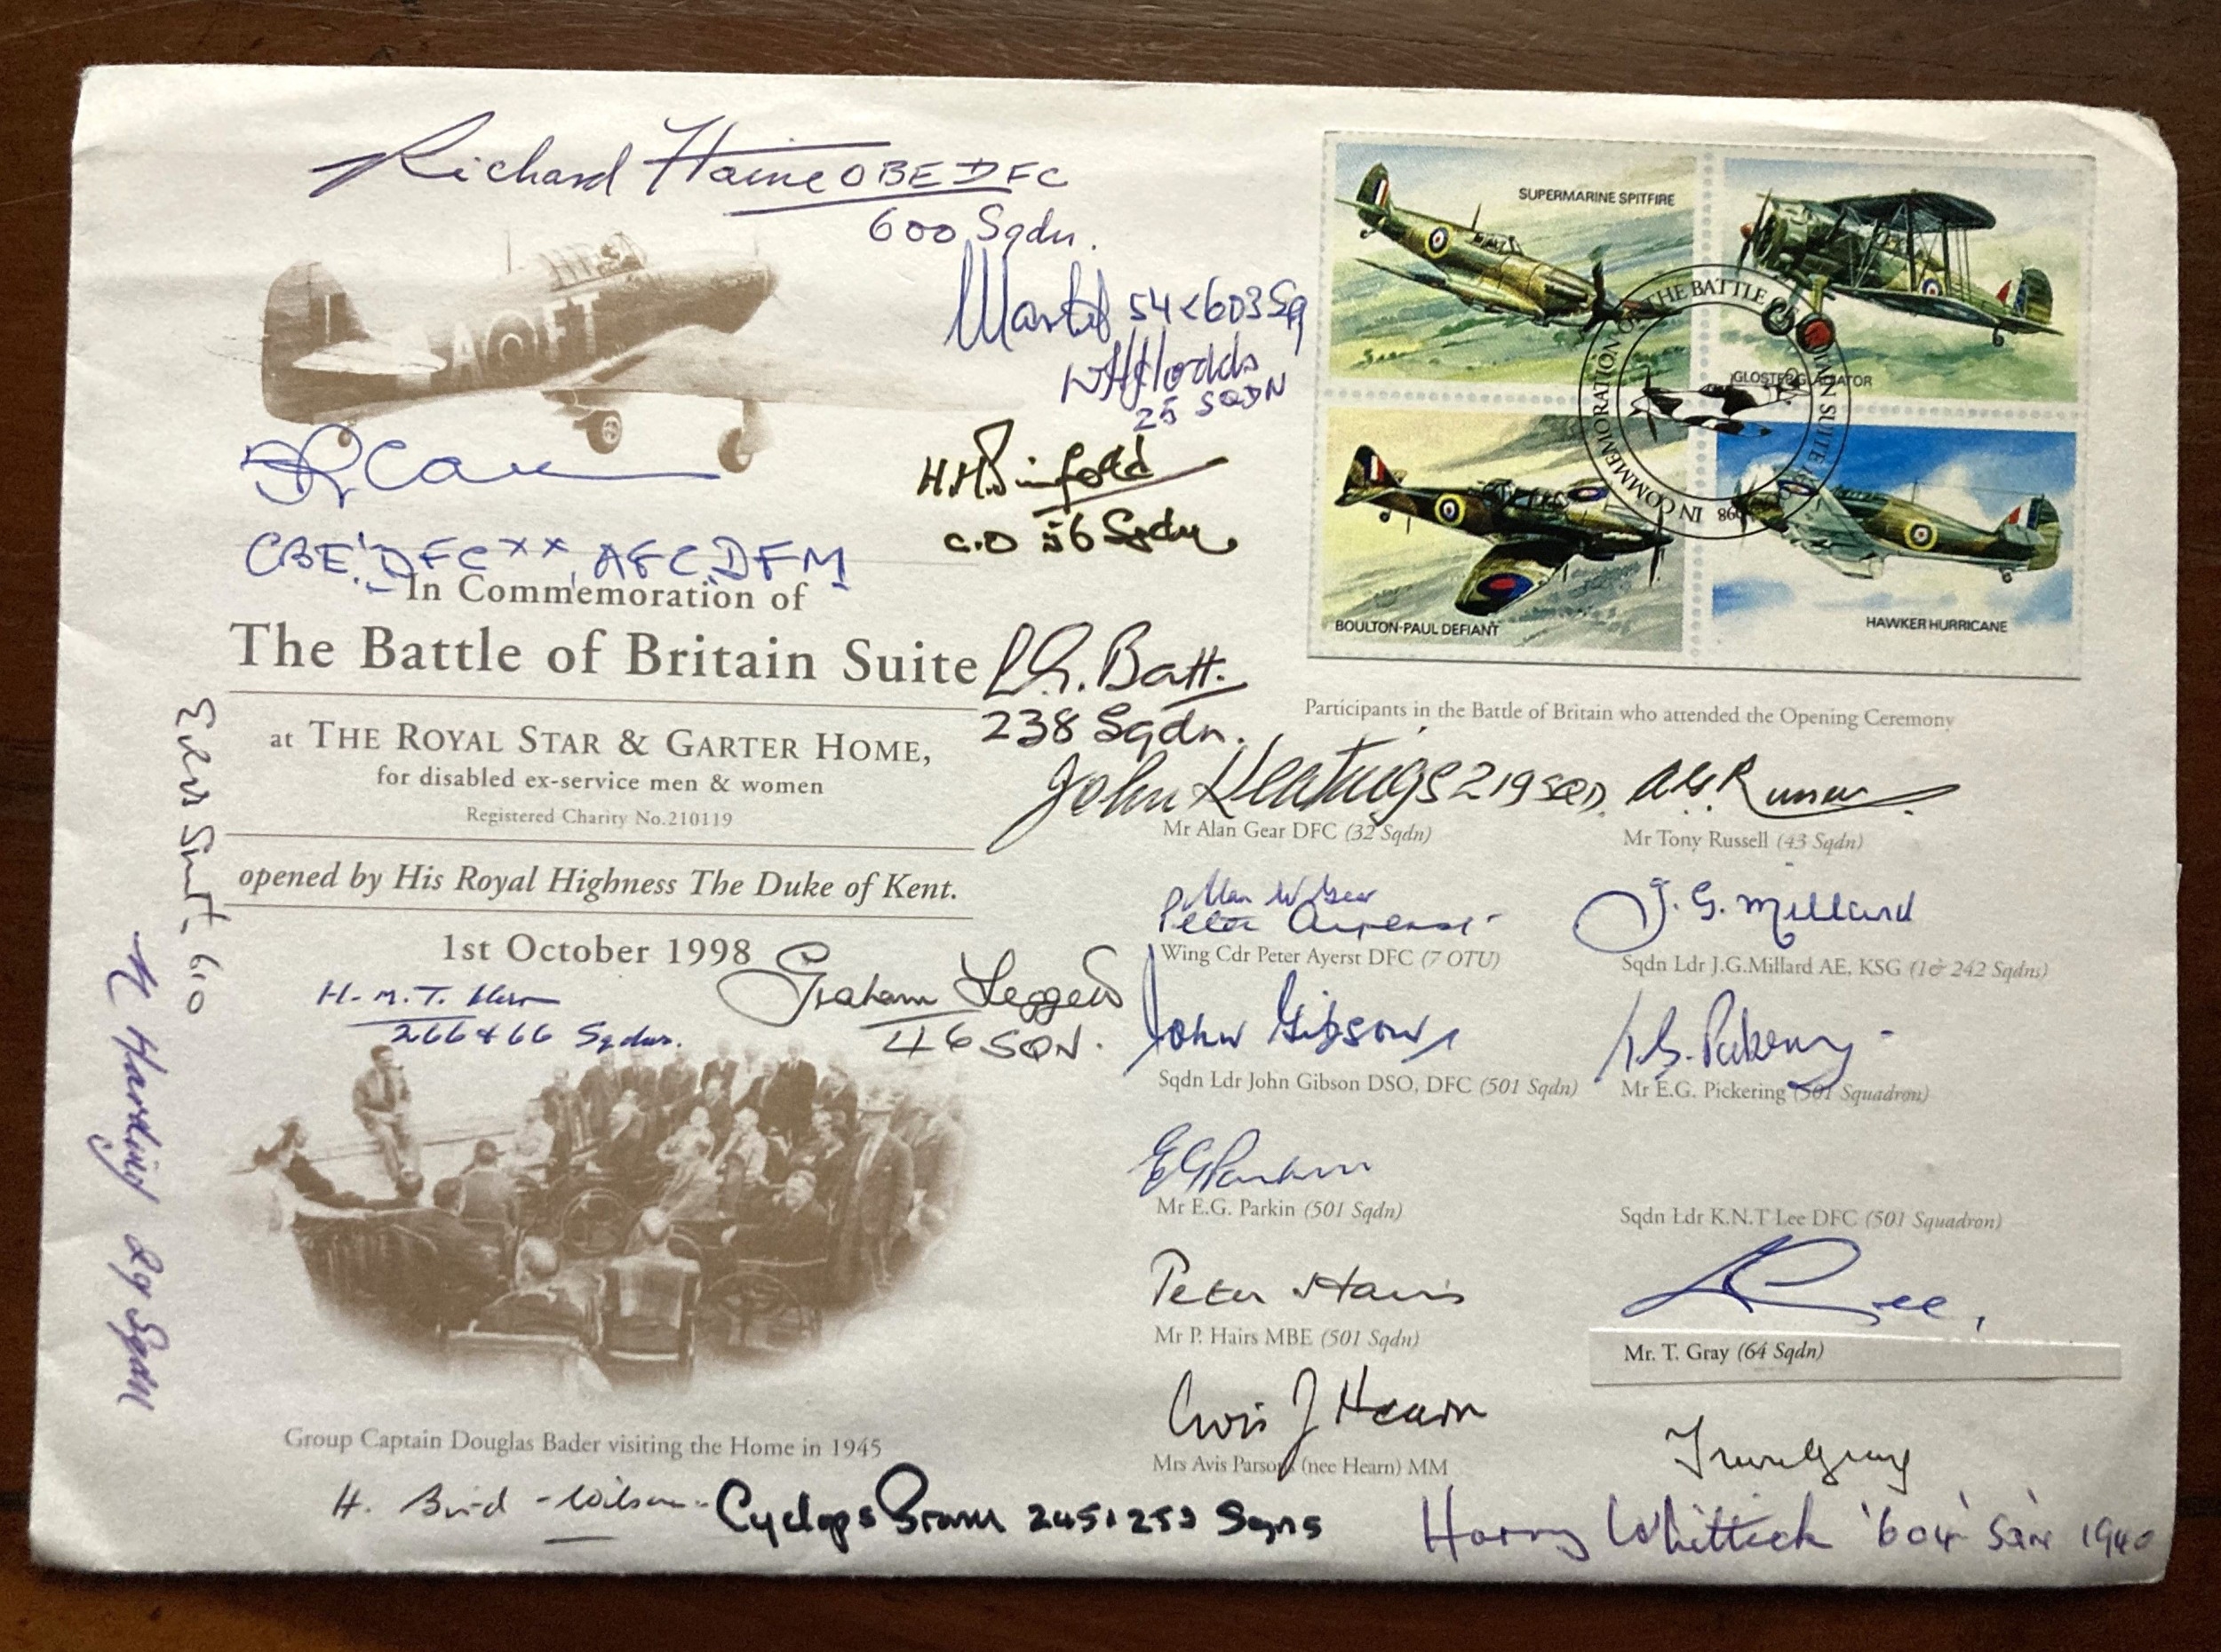 Richard Haine OBE DFC
600 Sqdn.
54 & 603 Sq
WHHodds
25 SQDN
A FT
CBE, DFC××, AFC, DFM
H.M. Pinfold
C.O 56 Sqdn
SUPERMARINE SPITFIRE
GLOSTER GLADIATOR
BOULTON-PAUL DEFIANT
HAWKER HURRICANE
IN COMMEMORATION OF THE BATTLE OF BRITAIN SUITE 1998
In Commemoration of
The Battle of Britain Suite
at THE ROYAL STAR & GARTER HOME,
for disabled ex-service men & women
Registered Charity No.210119
opened by His Royal Highness The Duke of Kent.
1st October 1998
L.G. Batt.
238 Sqdn.
Participants in the Battle of Britain who attended the Opening Ceremony
John Keatings 219 SQD.
Mr Alan Gear DFC (32 Sqdn)
Mr Tony Russell (43 Sqdn)
Alan W Gear
Peter Ayerst
Wing Cdr Peter Ayerst DFC (7 OTU)
J. G. Millard
Sqdn Ldr J.G.Millard AE, KSG (1& 242 Sqdns)
John Gibson
Sqdn Ldr John Gibson DSO, DFC (501 Sqdn)
T.G. Pickering
Mr E.G. Pickering (501 Squadron)
EGParkin
Mr E.G. Parkin (501 Sqdn)
Sqdn Ldr K.N.T Lee DFC (501 Squadron)
Lee,
Peter Hairs
Mr P. Hairs MBE (501 Sqdn)
Mr. T. Gray (64 Sqdn)
Avis J Hearn
Mrs Avis Parsons (nee Hearn) MM
Trevor Gray
H.M.T.
266 & 66 Sqdns.
Graham Leggett
46 SQN.
610
N Harding 29 Sqdn
Group Captain Douglas Bader visiting the Home in 1945
H. Bird-Wilson
Cyclops Brown 245 & 253 Sqns
Harry Whittick '604' Sqn 1940